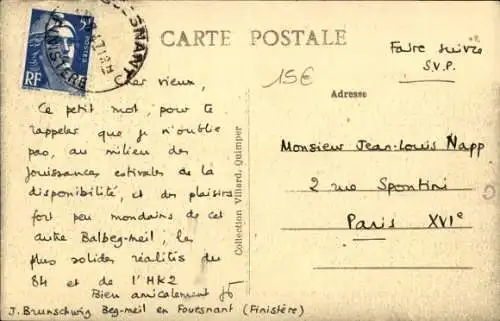 FOUESNANT
FINISTERE
RF
CARTE POSTALE
Faire suivre
S.V.P.
15€
Adresse
Cher vieux,
Ce petit mot, pour te
rappeler que je n'oublie
pas, au milieu des
jouissances estivales de la
disponibilité, et des plaisirs
fort peu mondains de cet
autre Balbeg-meil, les
plus solides réalités du
84 et de l'HK2
Bien amicalement
J. Brunschwig Beg-meil en Fouesnant (Finistère)
Collection Villard, Quimper
Monsieur Jean-Louis Napp
2 rue Spontini
Paris XVIe